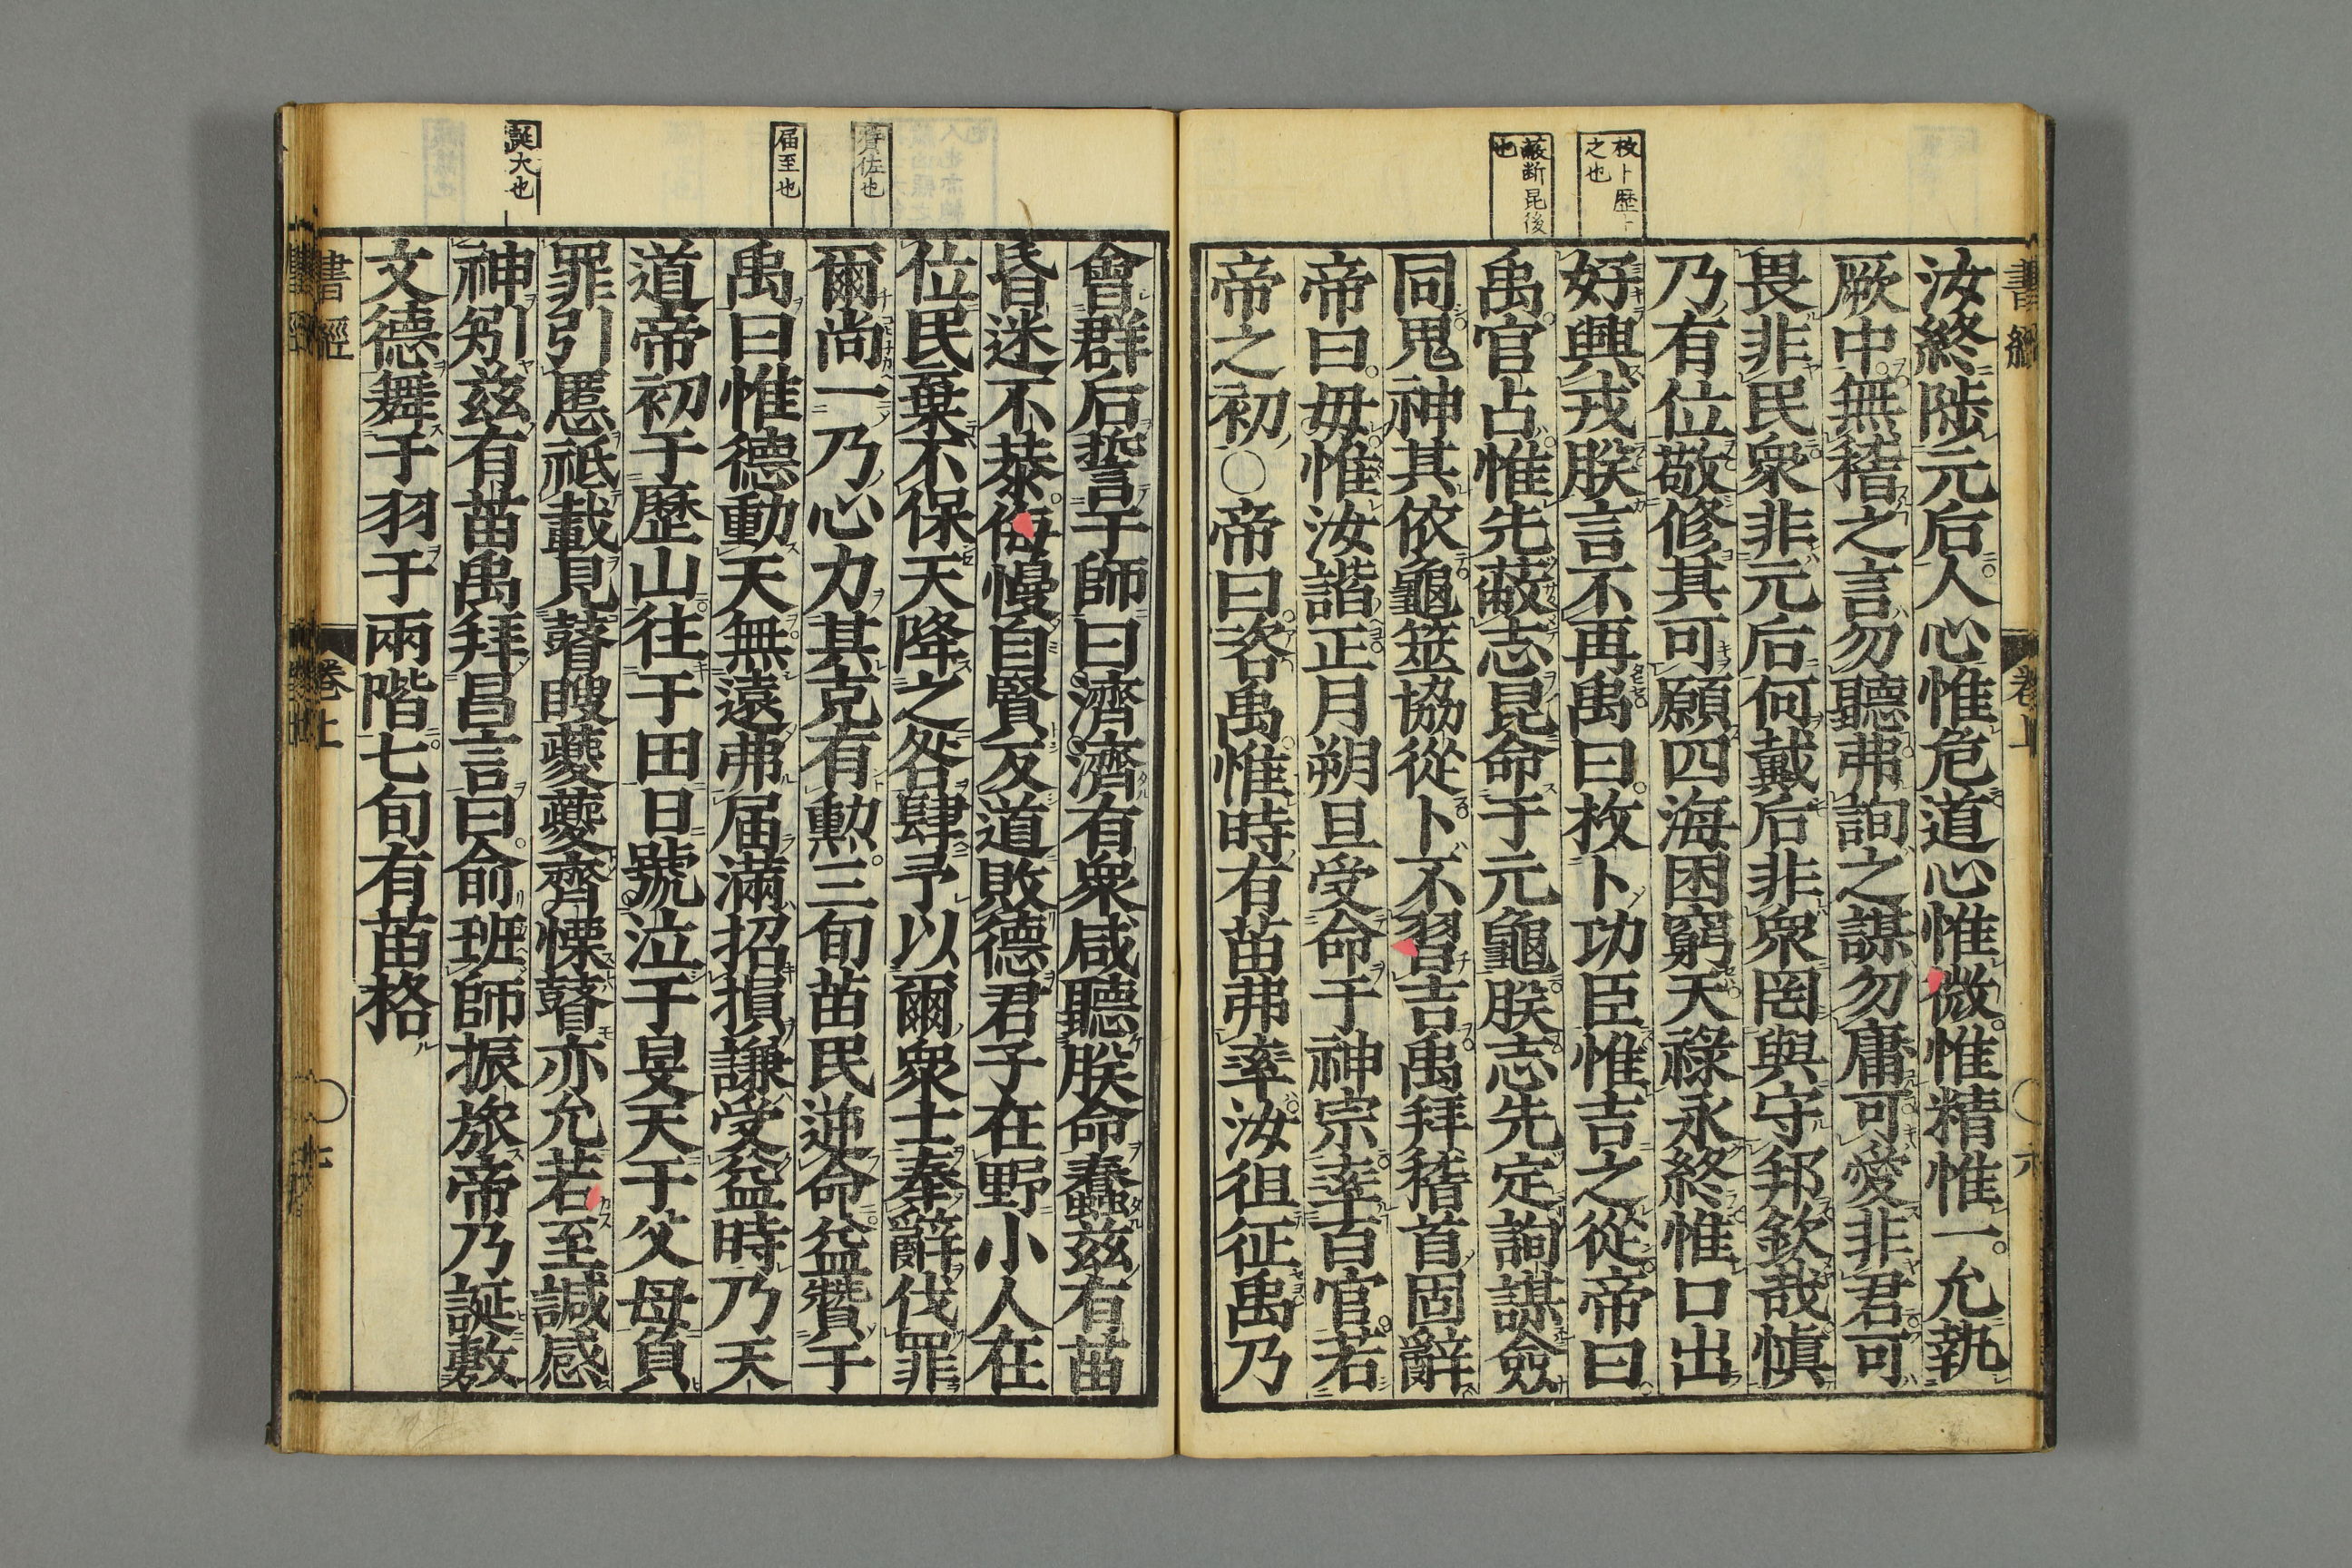 枚卜歴卜
之也
蔽断昆後
也
書經
卷上
六
汝終陟元后人心惟危道心惟微惟精惟一允執
厥中無稽之言勿聽弗詢之謀勿庸可愛非君可
畏非民衆非元后何戴后非衆罔與守邦欽哉愼
乃有位敬修其可願四海困窮天祿永終惟口出
好興戎朕言不再禹曰枚卜功臣惟吉之從帝曰
禹官占惟先蔽志昆命于元龜朕志先定詢謀僉
同鬼神其依龜筮協從卜不習吉禹拜稽首固辭
帝曰毋惟汝諧正月朔旦受命于神宗率百官若
帝之初○帝曰咨禹惟時有苗弗率汝徂征禹乃
賛佐也
届至也
誕大也
會群后誓于師曰濟濟有衆咸聽朕命蠢茲有苗
昏迷不恭侮慢自賢反道敗德君子在野小人在
位民棄不保天降之咎肆予以爾衆士奉辭伐罪
爾尚一乃心力其克有勲三旬苗民逆命益贊于
禹曰惟德動天無遠弗届滿招損謙受益時乃天
道帝初于歷山往于田日號泣于旻天于父母負
罪引慝祗載見瞽瞍夔夔齊慄瞽亦允若至諴感
神矧茲有苗禹拜昌言曰俞班師振旅帝乃誕敷
文德舞干羽于兩階七旬有苗格
書經
卷上
七